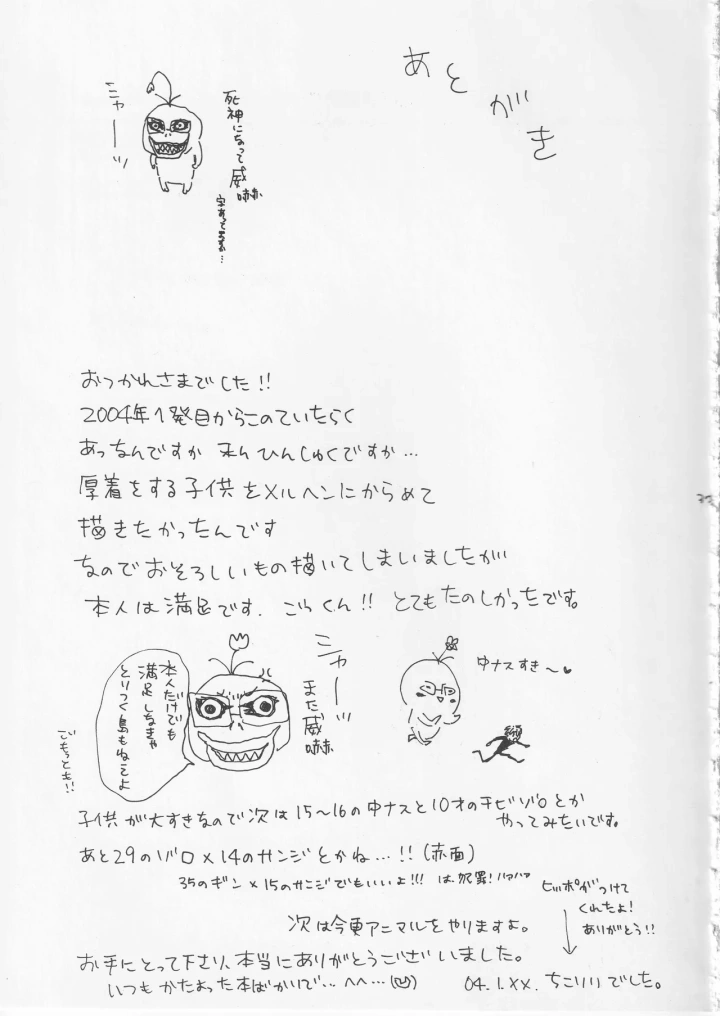 あとがき
ニャーーッ
死神になって威嚇
字あってるか…
おつかれさまでした!!
2004年1発目からこのていたらく
あっなんですか ひんしゅくですか…
厚着をする子供をメルヘンにからめて
描きたかったんです
なのでおそろしいもの描いてしまいましたが
本人は満足です. ごらくん!! とてもたのしかったです。
ニャーーッ
また威嚇
本人だけでも
満足しなきゃ
とりつく島もねェよ
ごもっとも!!
中ナスすき〜♥
子供が大すきなので次は15〜16の中ナスと10才のチビゾロとか
やってみたいです。
あと29のゾロ×14のサンジとかね…!!(赤面)
35のギン×15のサンジでもいいよ!!! は.犯罪!ハァハァ
ヒッポがつけて
くれたよ!
ありがとう!!
次は今更アニマルをやりますよ。
お手にとって下さり、本当にありがとうございました。
いつもかたよった本ばかりで… へへ…
04.1.XX. ちこりリでした。